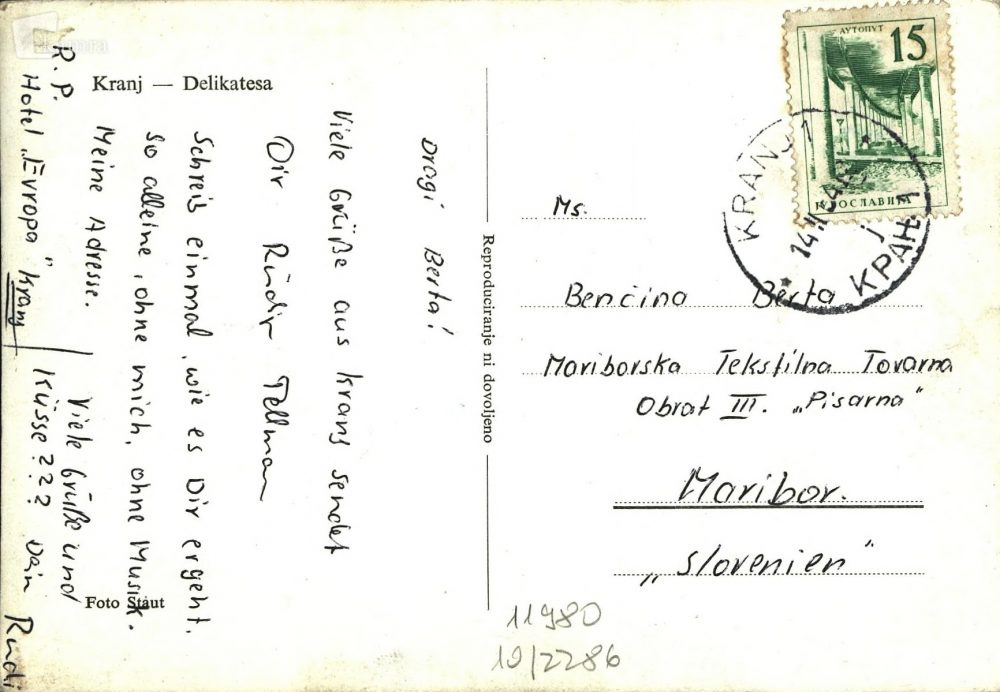 Kranj — Delikatesa
Drogi Berta!
Viele Grüße aus Kranj sendet
Dir Rüdiger Tellman
Schreib einmal, wie es Dir ergeht.
So alleine, ohne mich, ohne Musik.
Meine Adresse.
R. P.
Hotel „Evropa" Kranj
Viele Grüße und
Küsse??? Dein Rudi
Foto Štaut
Reproduciranje ni dovoljeno
АУТОПУТ
15
ЈУГОСЛАВИЈА
KRANJ 1
КРАЊ 1
Ms.
Benčina Berta
Mariborska Tekstilna Tovarna
Obrat III. „Pisarna"
Maribor.
„Slovenien"
11980
10/2286